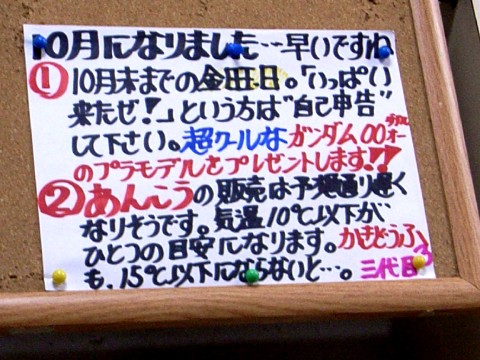 10月になりました…早いですね
① 10月末までの金田日。「いっぱい
来たぜ！」という方は"自己申告"
して下さい。超クールなガンダム00ダブルオー
のプラモデルをプレゼントします!?
② あんこうの販売は予想通り遅く
なりそうです。気温10℃以下が
ひとつの目安になります。かきどうふ
も、15℃以下にならないと…。三代目3